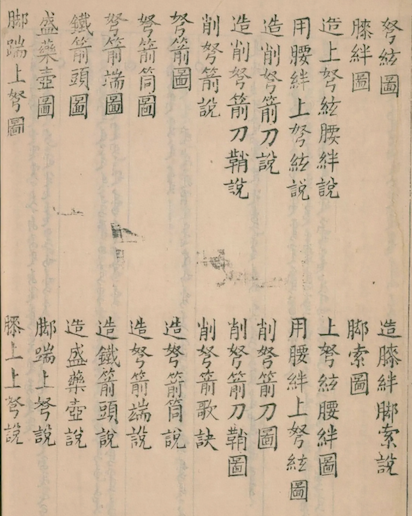 弩絃圖
造膝絆脚索說
膝絆圖
脚索圖
造上弩絃腰絆說
上弩絃腰絆圖
用腰絆上弩絃說
用腰絆上弩絃圖
造削弩箭刀說
削弩箭刀圖
造削弩箭刀鞘說
削弩箭刀鞘圖
削弩箭說
削弩箭歌訣
弩箭圖
造弩箭筒說
弩箭筒圖
造弩箭端說
弩箭端圖
造鐵箭頭說
鐵箭頭圖
造盛藥壺說
盛藥壺圖
脚踹上弩說
脚踹上弩圖
膝上上弩說